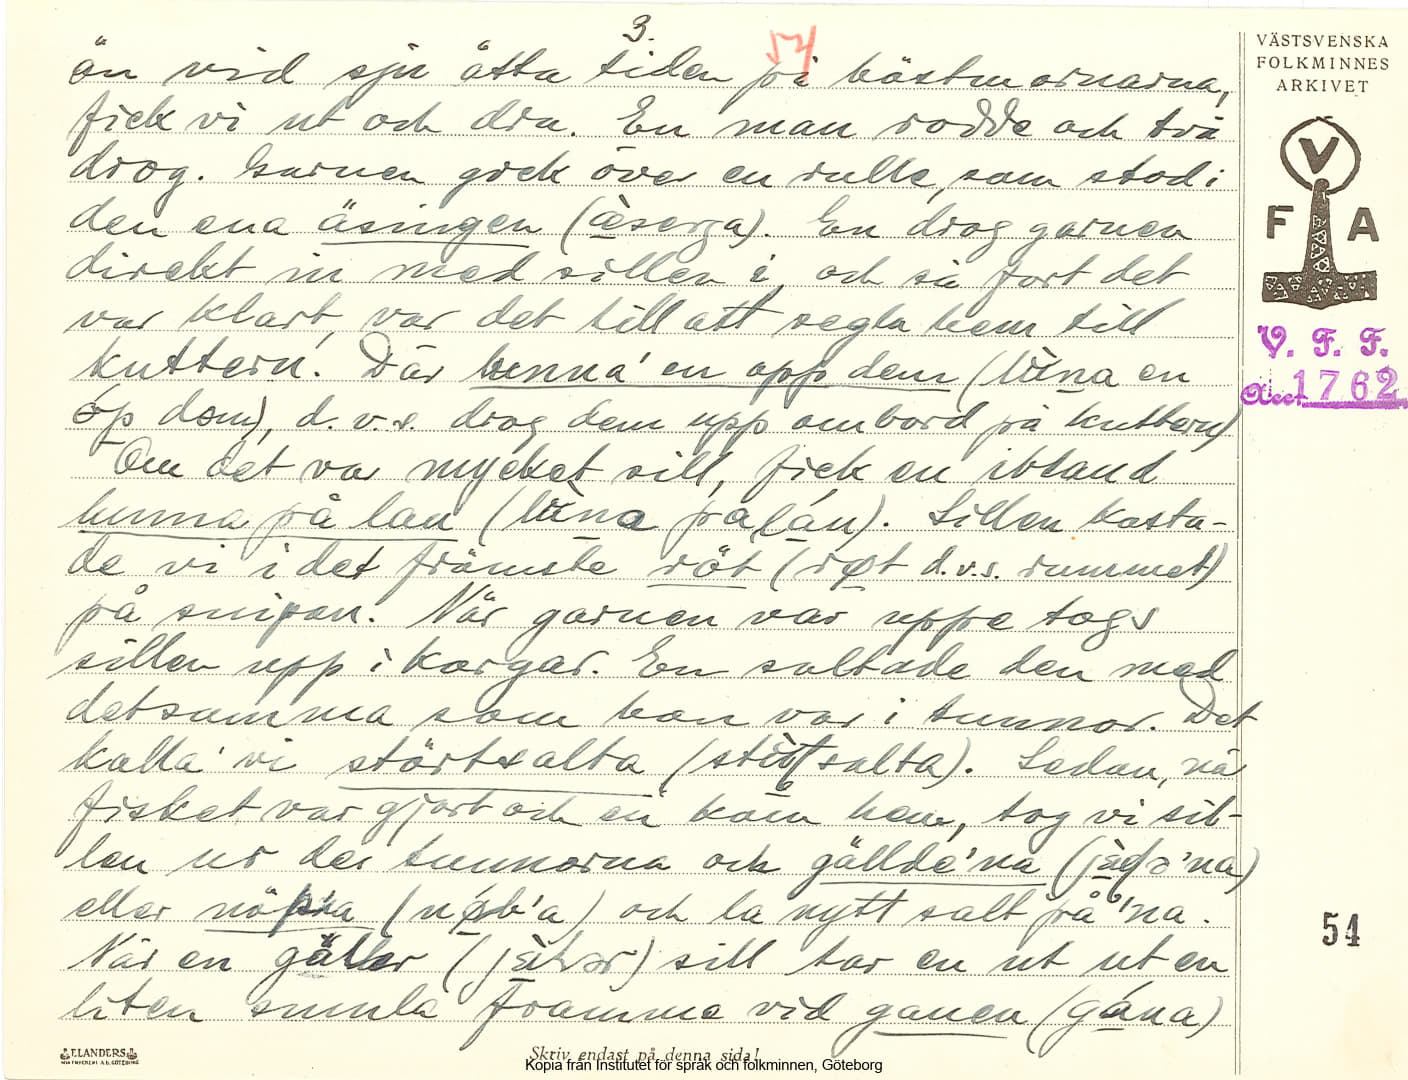 3.
54
VÄSTSVENSKA
FOLKMINNES
ARKIVET
V
F A
V. F. F.
Acc. 1762
än vid sju åtta tiden på höstmornarna,
fick vi ut och dra. En man rodde och två
drog. Garnen gick över en rulle, som stod i
den ena äsingen. En drog garnen
direkt in med sillen i, och så fort det
var klart, var det till att segla hem till
kuttern. Där henna' en opp dem en
óp dom), d. v. s. drog dem upp ombord på kuttern)
Om det var mycket sill, fick en ibland
på lan. Sillen kasta-
de vi i det främste röt (røt d.v.s. rummet)
på snipan. När garnen var uppe togs
sillen upp i korgar. En saltade den med
detsamma som han var i tunnor. Det
kalla' vi störtsalta. Sedan, nä
fisket var gjort och en kom hem, tog vi sil-
len ur de tunnorna och gällde'na
eller och la nytt salt på 'na.
När en gäller sill tar en ut en
liten smula framme vid ganen (gána)
54
ELANDERS
Skriv endast på denna sida!
Kopia från Institutet för språk och folkminnen, Göteborg